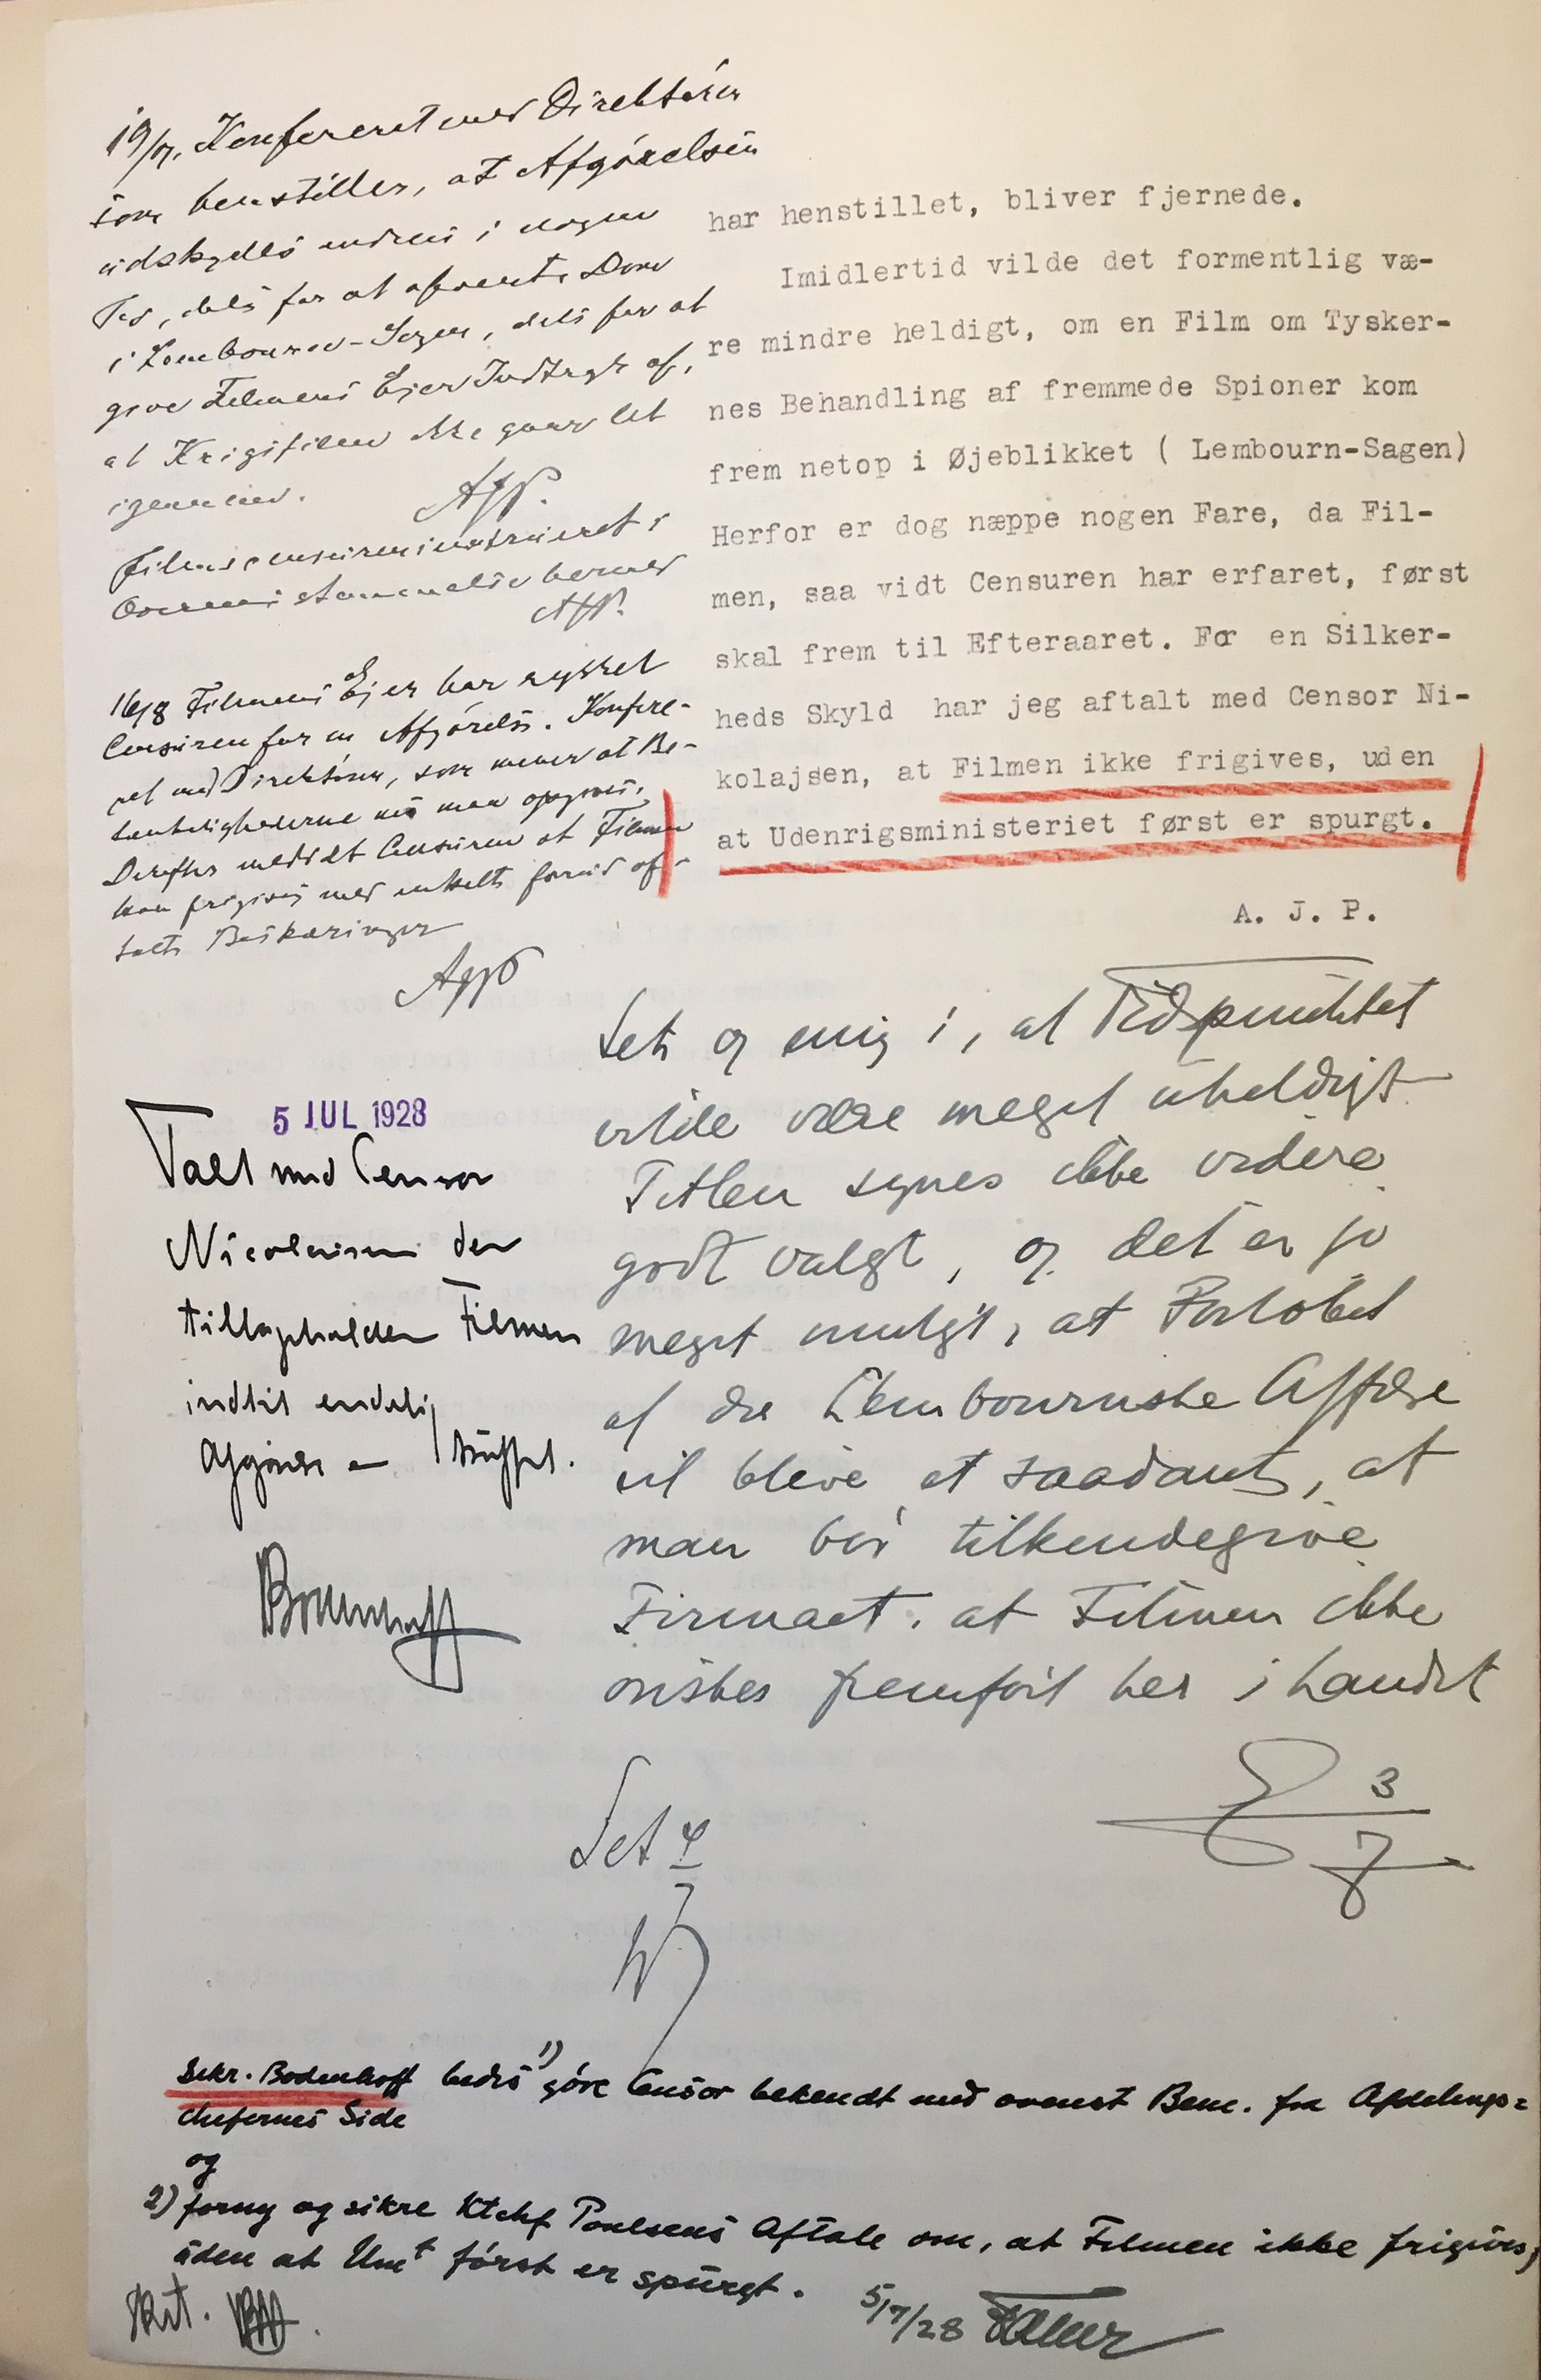 19/7. Konfereret med Direktøren
som henstiller, at Afgørelsen
udskydes endnu i nogen
Tid, dels for at afvente Dom
i Lembourn-Sagen, dels for at
give Filmens Ejer Indtryk af,
at Krigsfilm ikke gaar let
igennem.
Filmscensuren instrueret i
Overensstemmelse hermed
16/8 Filmens Ejer har rykket
Censuren for en Afgørelse. Konfere-
ret med Direktøren, som mener at Be-
tænkelighederne nu maa opgives.
Derefter meddelt Censuren at Filmen
kan frigives med enkelte forud af-
talte Beskæringer
har henstillet, bliver fjernede.
Imidlertid vilde det formentlig væ-
re mindre heldigt, om en Film om Tysker-
nes Behandling af fremmede Spioner kom
frem netop i Øjeblikket ( Lembourn-Sagen)
Herfor er dog næppe nogen Fare, da Fil-
men, saa vidt Censuren har erfaret, først
skal frem til Efteraaret. For en Silker-
heds Skyld har jeg aftalt med Censor Ni-
kolajsen, at Filmen ikke frigives, uden
at Udenrigsministeriet først er spurgt.
A. J. P.
Set og enig i, at Tidspunktet
vilde være meget uheldigt
Titlen synes ikke videre
godt valgt, og det er jo
meget muligt, at Forløbet
af den Lembournske Affære
vil blive et saadant, at
man bør tilkendegive
Firmaet, at Filmen ikke
ønskes fremført her i Landet
3
7
5 JUL 1928
Talt med Censor
Nicolaisen der
tilbageholder Filmen
indtil endelig
Afgørelse er truffet.
Bodenhoff
Set 4
7
Sekr. Bodenhoff bedes 1) gøre Censor bekendt med ovenst Bem. fra Afdelings=
chefernes Side
og
2) forny og sikre Ktchf Poulsens Aftale om, at Filmen ikke frigives,
uden at Umt først er spurgt.
5/7/28